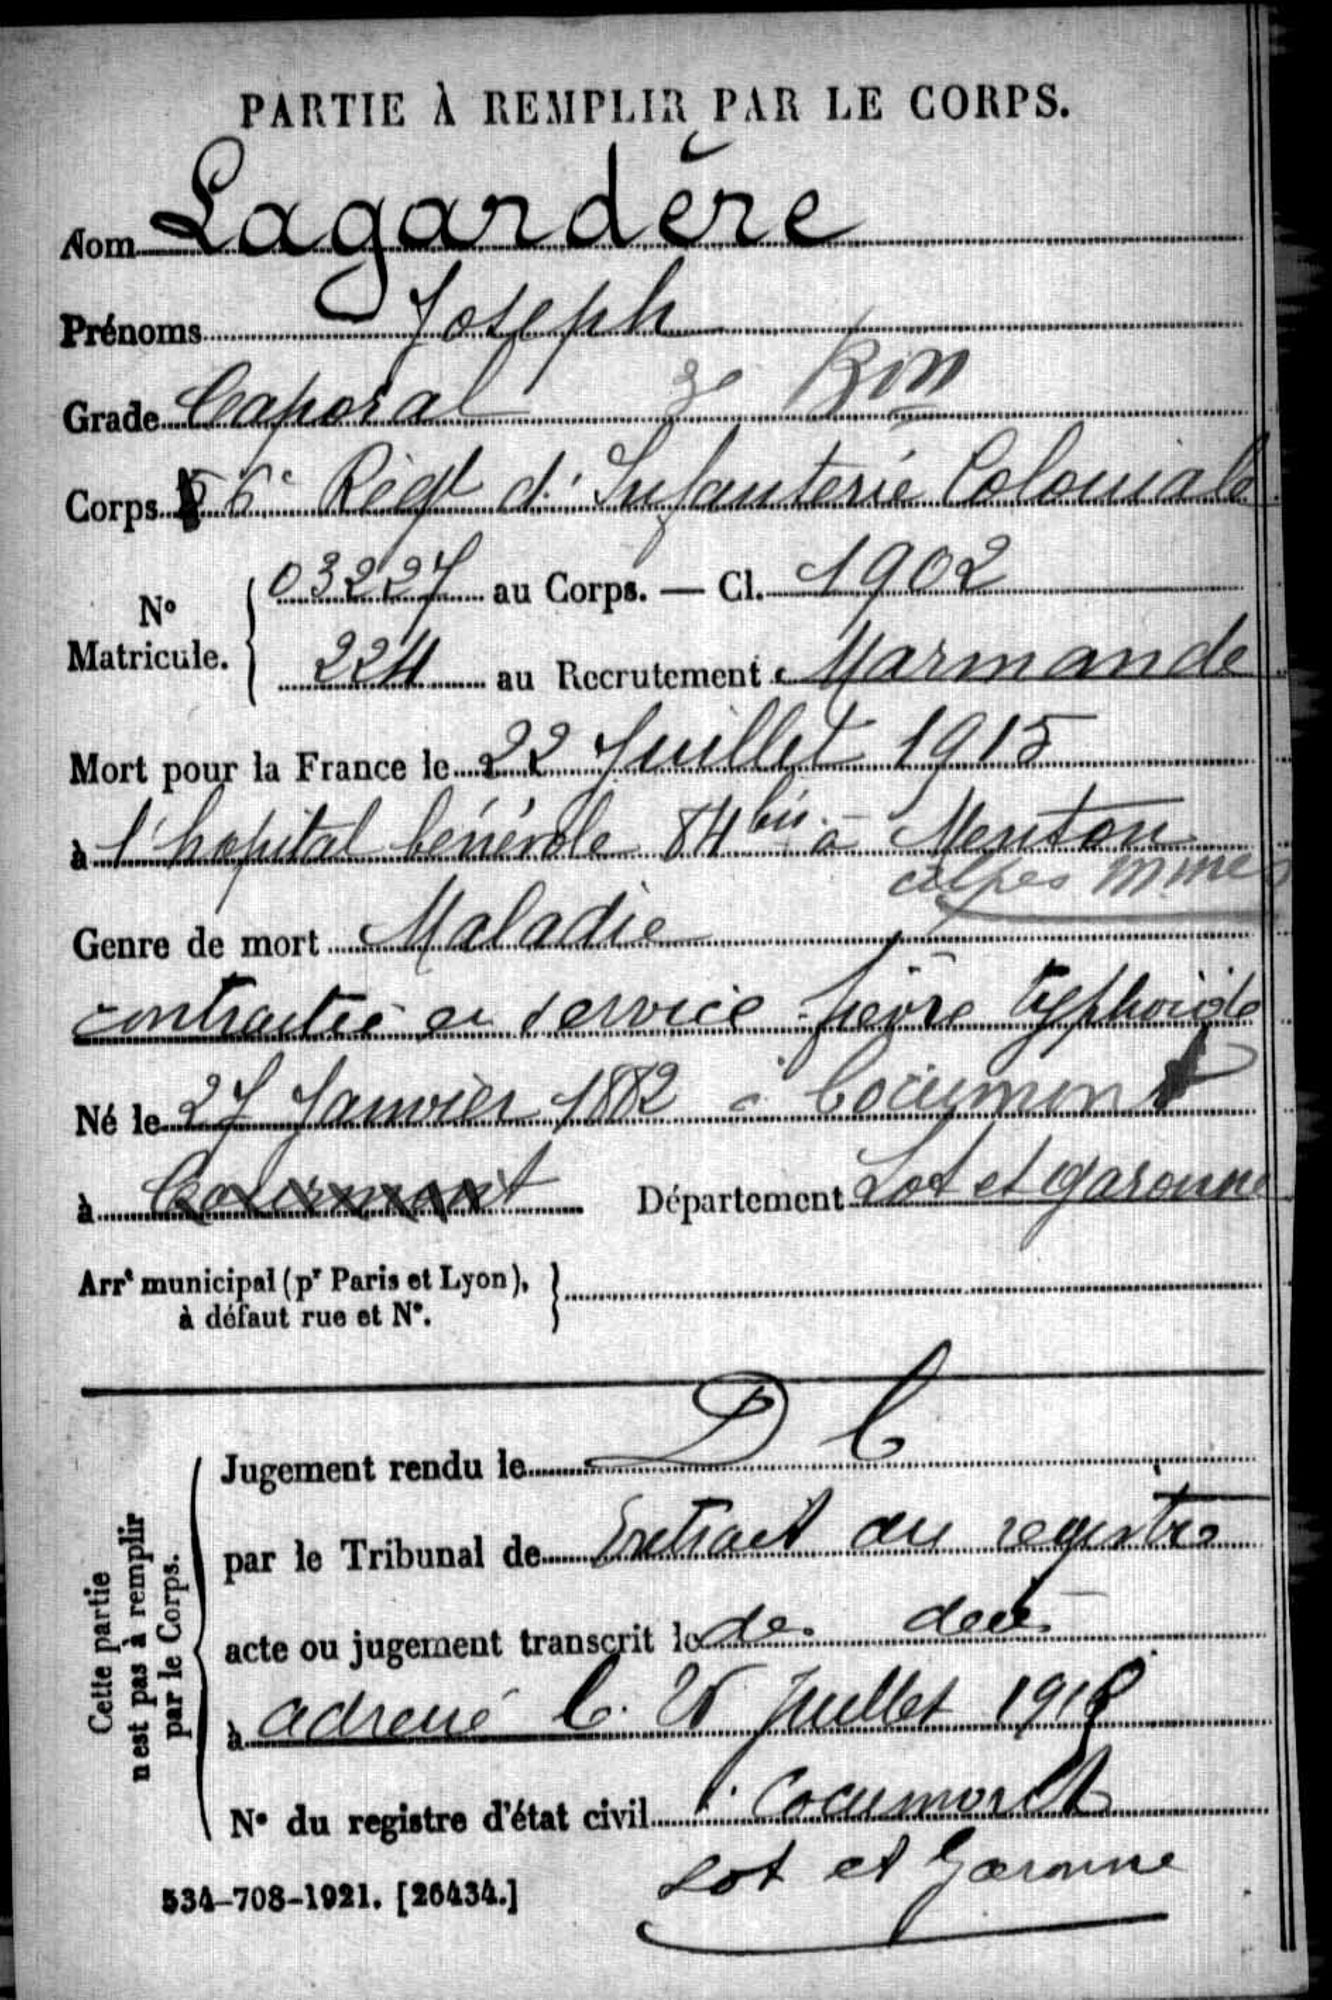 PARTIE À REMPLIR PAR LE CORPS.
Nom Lagardère
Prénoms Joseph
Grade Caporal 3e Bon
Corps 6e Régt d'Infanterie Coloniale
No Matricule. 03227 au Corps. — Cl. 1902
224 au Recrutement Marmande
Mort pour la France le 22 Juillet 1915
à l'hopital bénévole 84 bis à Menton
alpes mmes
Genre de mort Maladie
contractée en service fièvre typhoïde
Né le 27 Janvier 1882 à Cocumont
à Département Lot et Garonne
Arrt municipal (pr Paris et Lyon),
à défaut rue et No.
Cette partie
n'est pas à remplir
par le Corps.
Jugement rendu le D C
par le Tribunal de Extrait du registre
acte ou jugement transcrit le de décès
à adressé le juillet 191
No du registre d'état civil à Cocumont
Lot et Garonne
534-708-1921. [26434.]